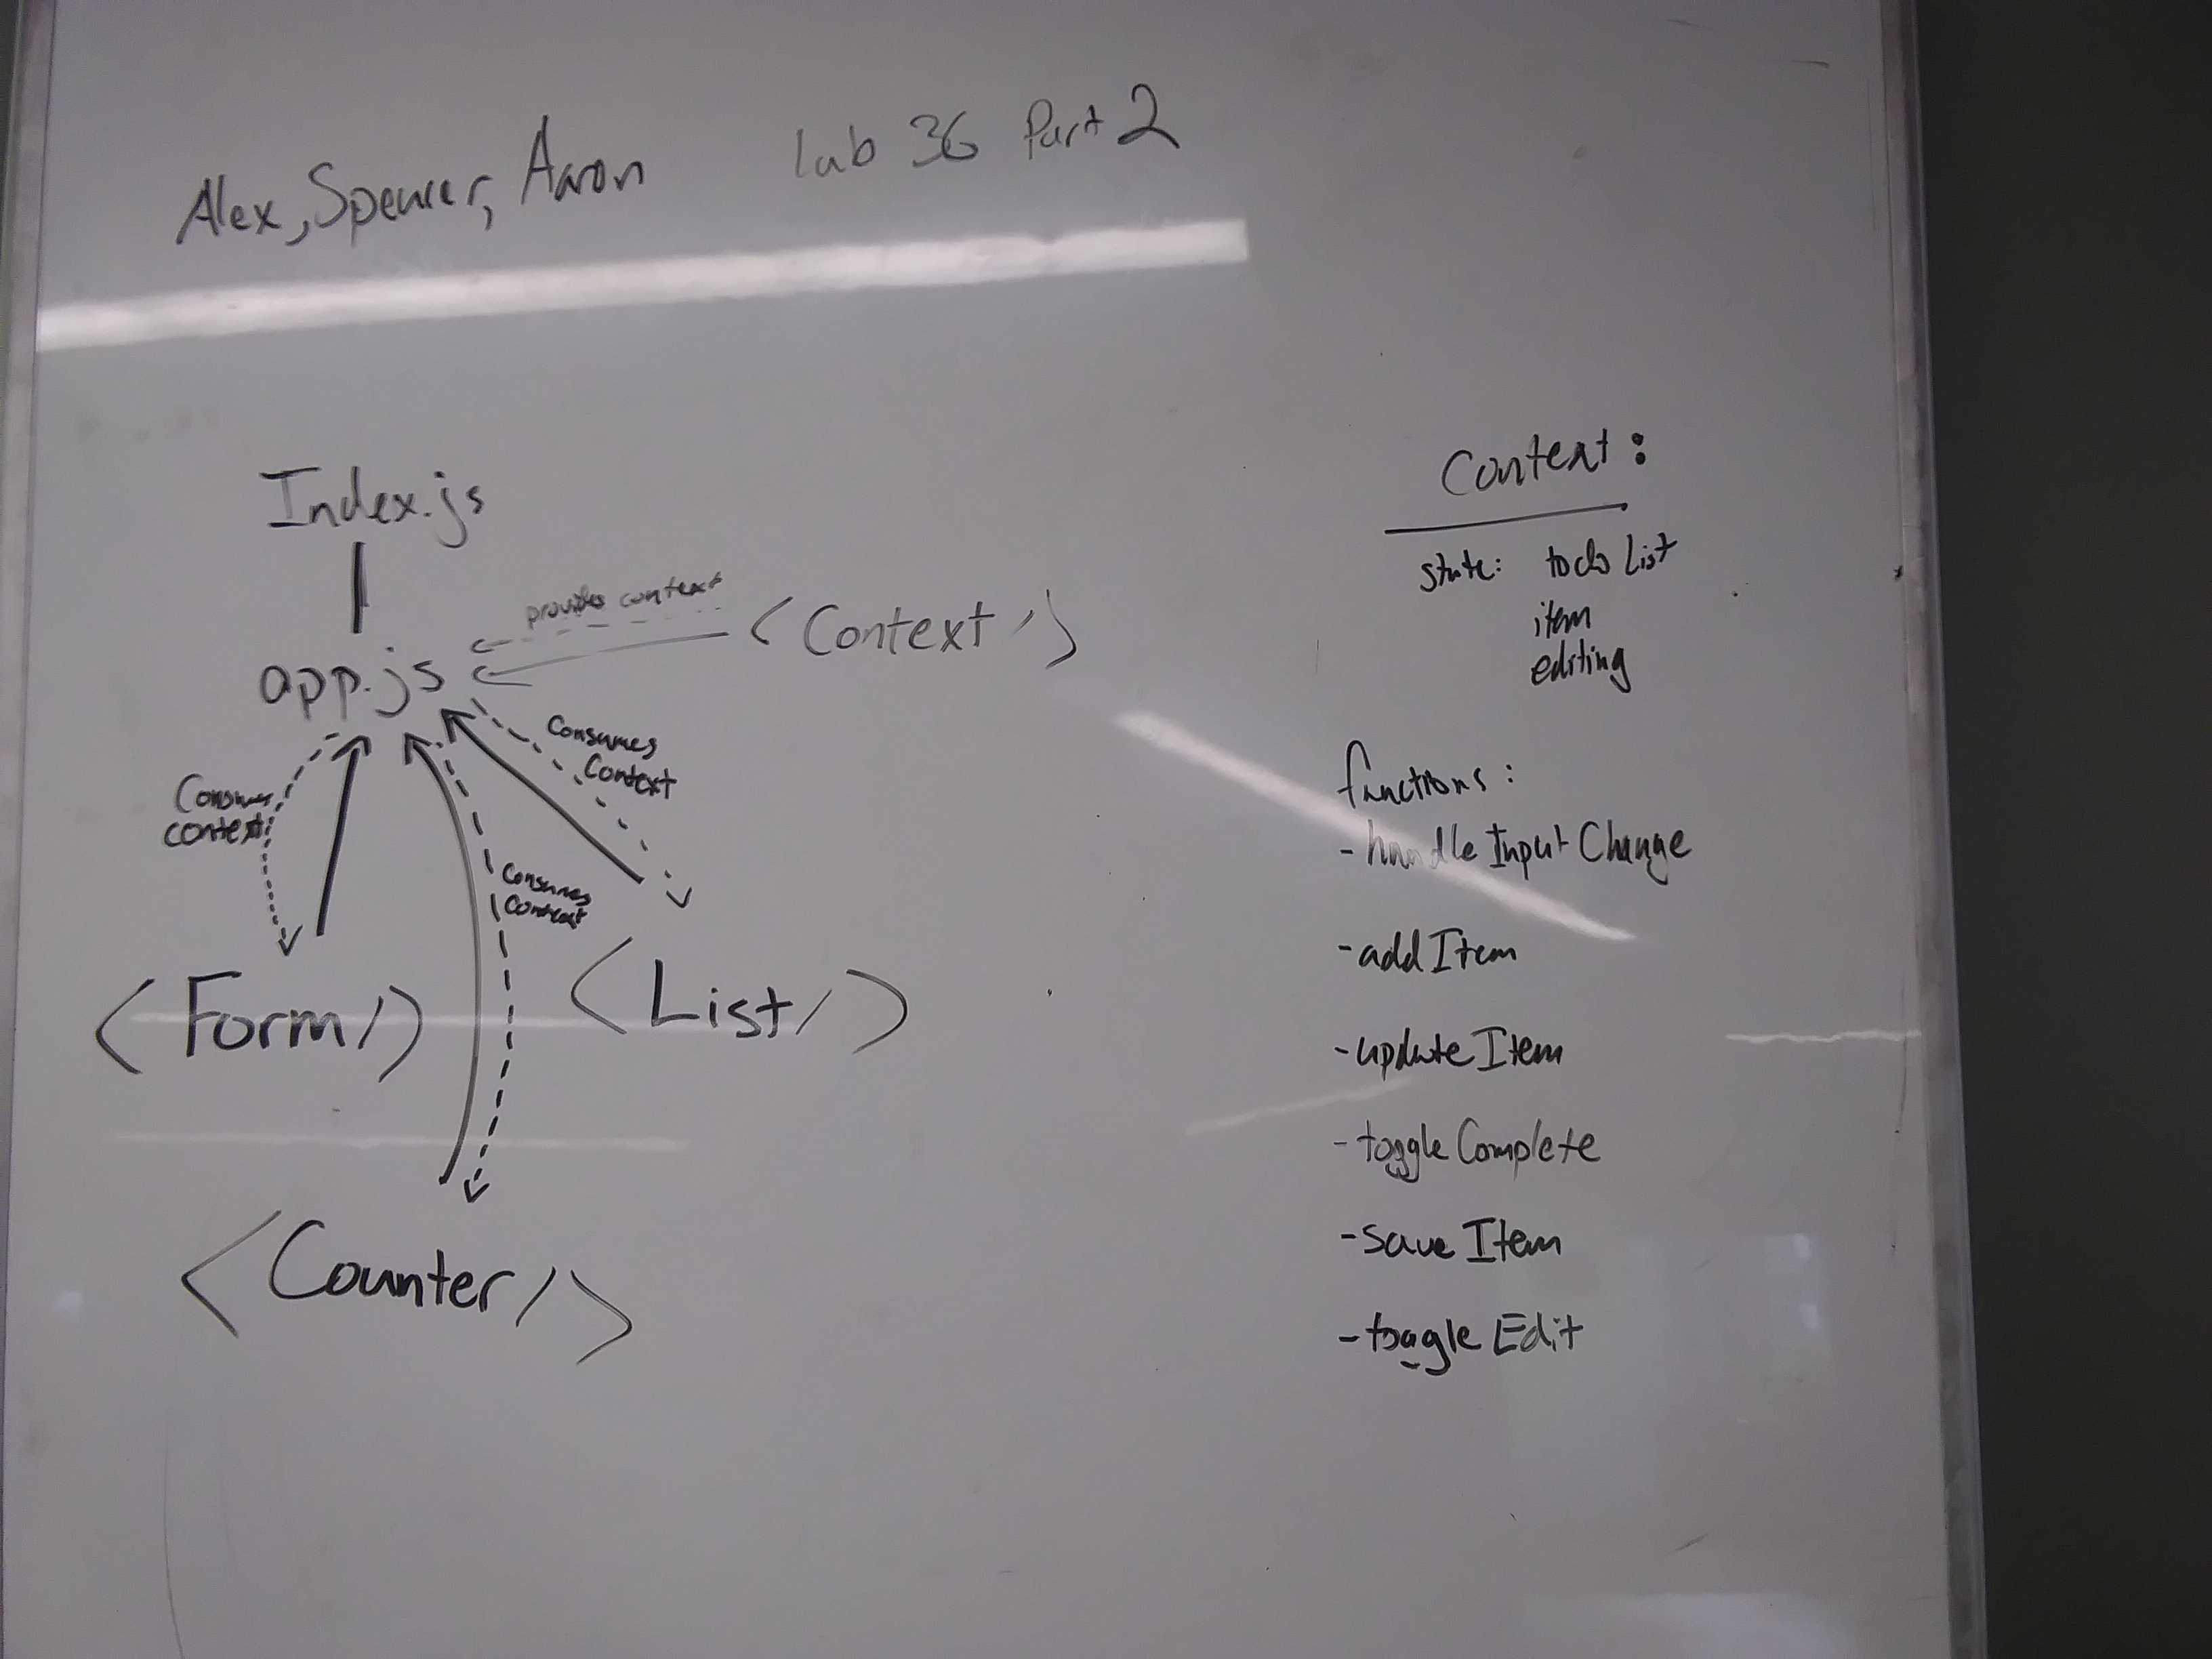 Alex, Spencer, Aaron lab 36 Part 2
Index.js
provides context
<Context />
app.js
Consumes
Context
Consumes
context
Consumes
Context
<Form/>
<List/>
<Counter/>
Context:
state: todo List
item
editing
functions:
- handle Input Change
- add Item
- update Item
- toggle Complete
- save Item
- toggle Edit